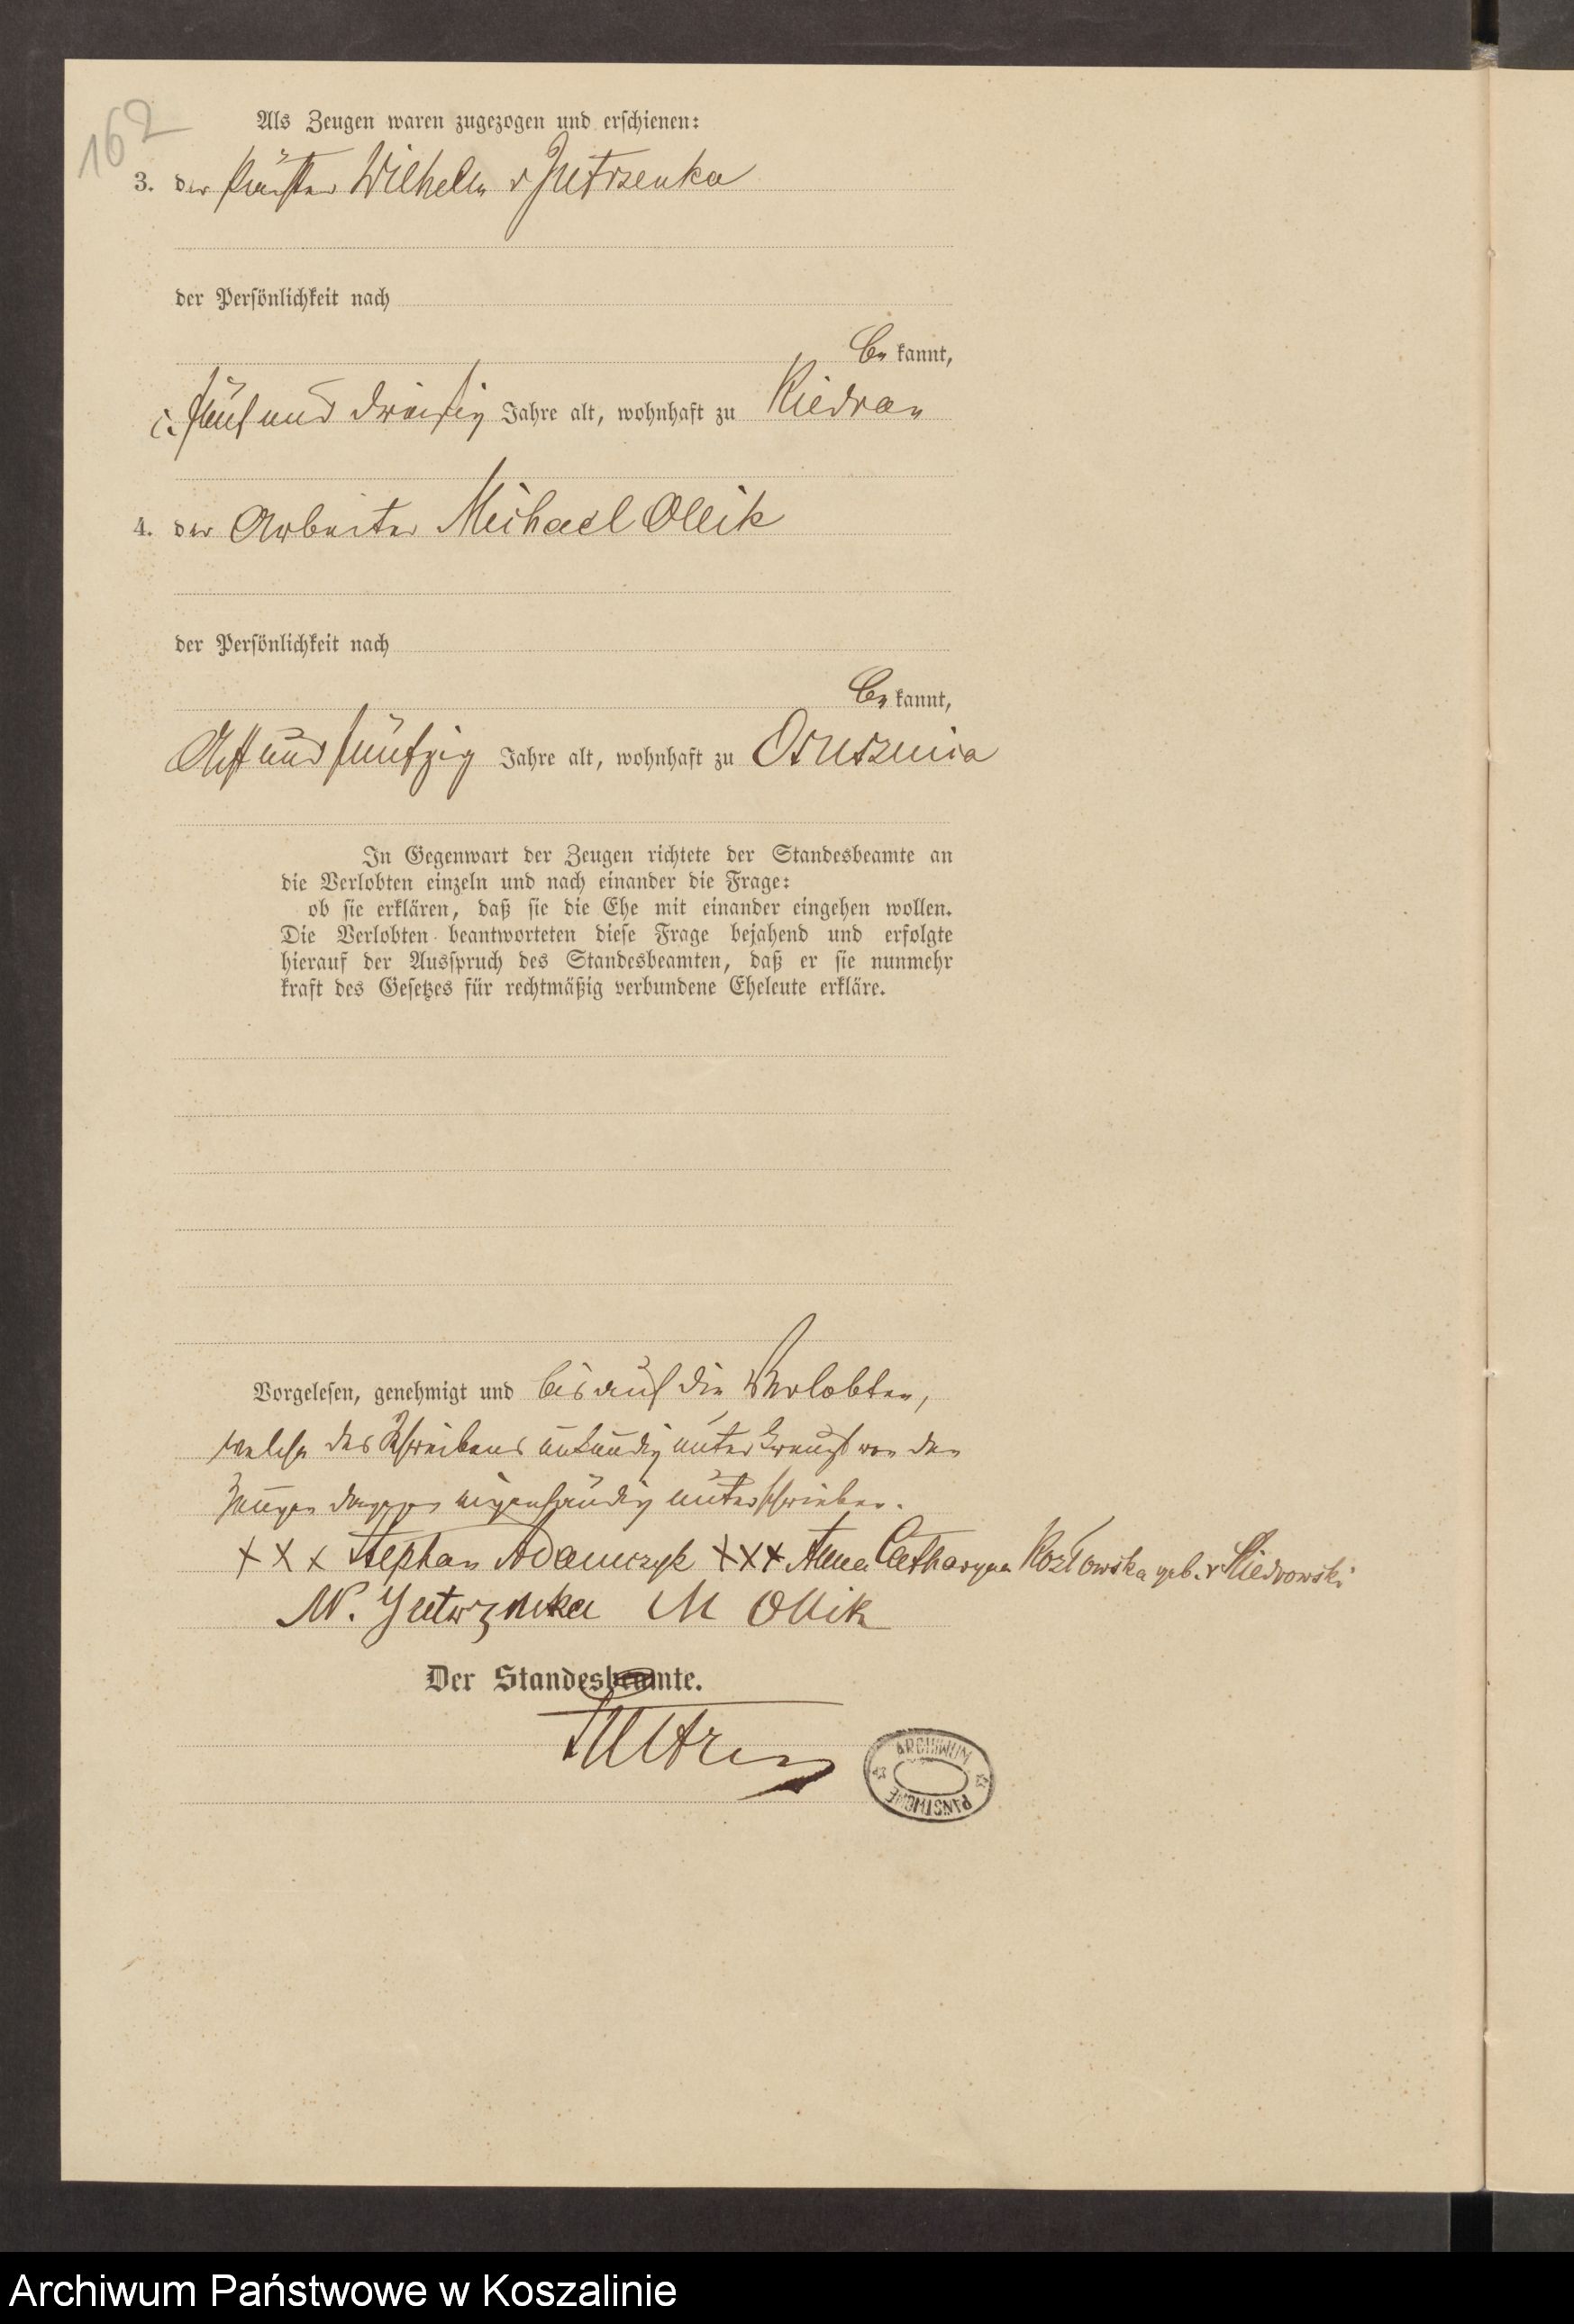 162
Als Zeugen waren zugezogen und erschienen:
3. der Wilhelm v Jutrzenka
der Persönlichkeit nach
be kannt,
fünf und dreißig Jahre alt, wohnhaft zu Kiedrau
4. der Arbeiter Michael Ollik
der Persönlichkeit nach
be kannt,
Acht und fünfzig Jahre alt, wohnhaft zu Ossusznica
In Gegenwart der Zeugen richtete der Standesbeamte an
die Verlobten einzeln und nach einander die Frage:
ob sie erklären, daß sie die Ehe mit einander eingehen wollen.
Die Verlobten beantworteten diese Frage bejahend und erfolgte
hierauf der Ausspruch des Standesbeamten, daß er sie nunmehr
kraft des Gesetzes für rechtmäßig verbundene Eheleute erkläre.
Vorgelesen, genehmigt und bis auf die Verlobten,
welche des Schreibens unkundig unterkreuzt von den
Zeugen dagegen eigenhändig unterschrieben.
+ X x Stephan Adamczyk +XX Anna Catharyna Kozłowska geb. v Kiedrowski
W. Jutrzenka M Ollik
Der Standesbeamte.
ARCHIWUM
PAŃSTWOWE
Archiwum Państwowe w Koszalinie